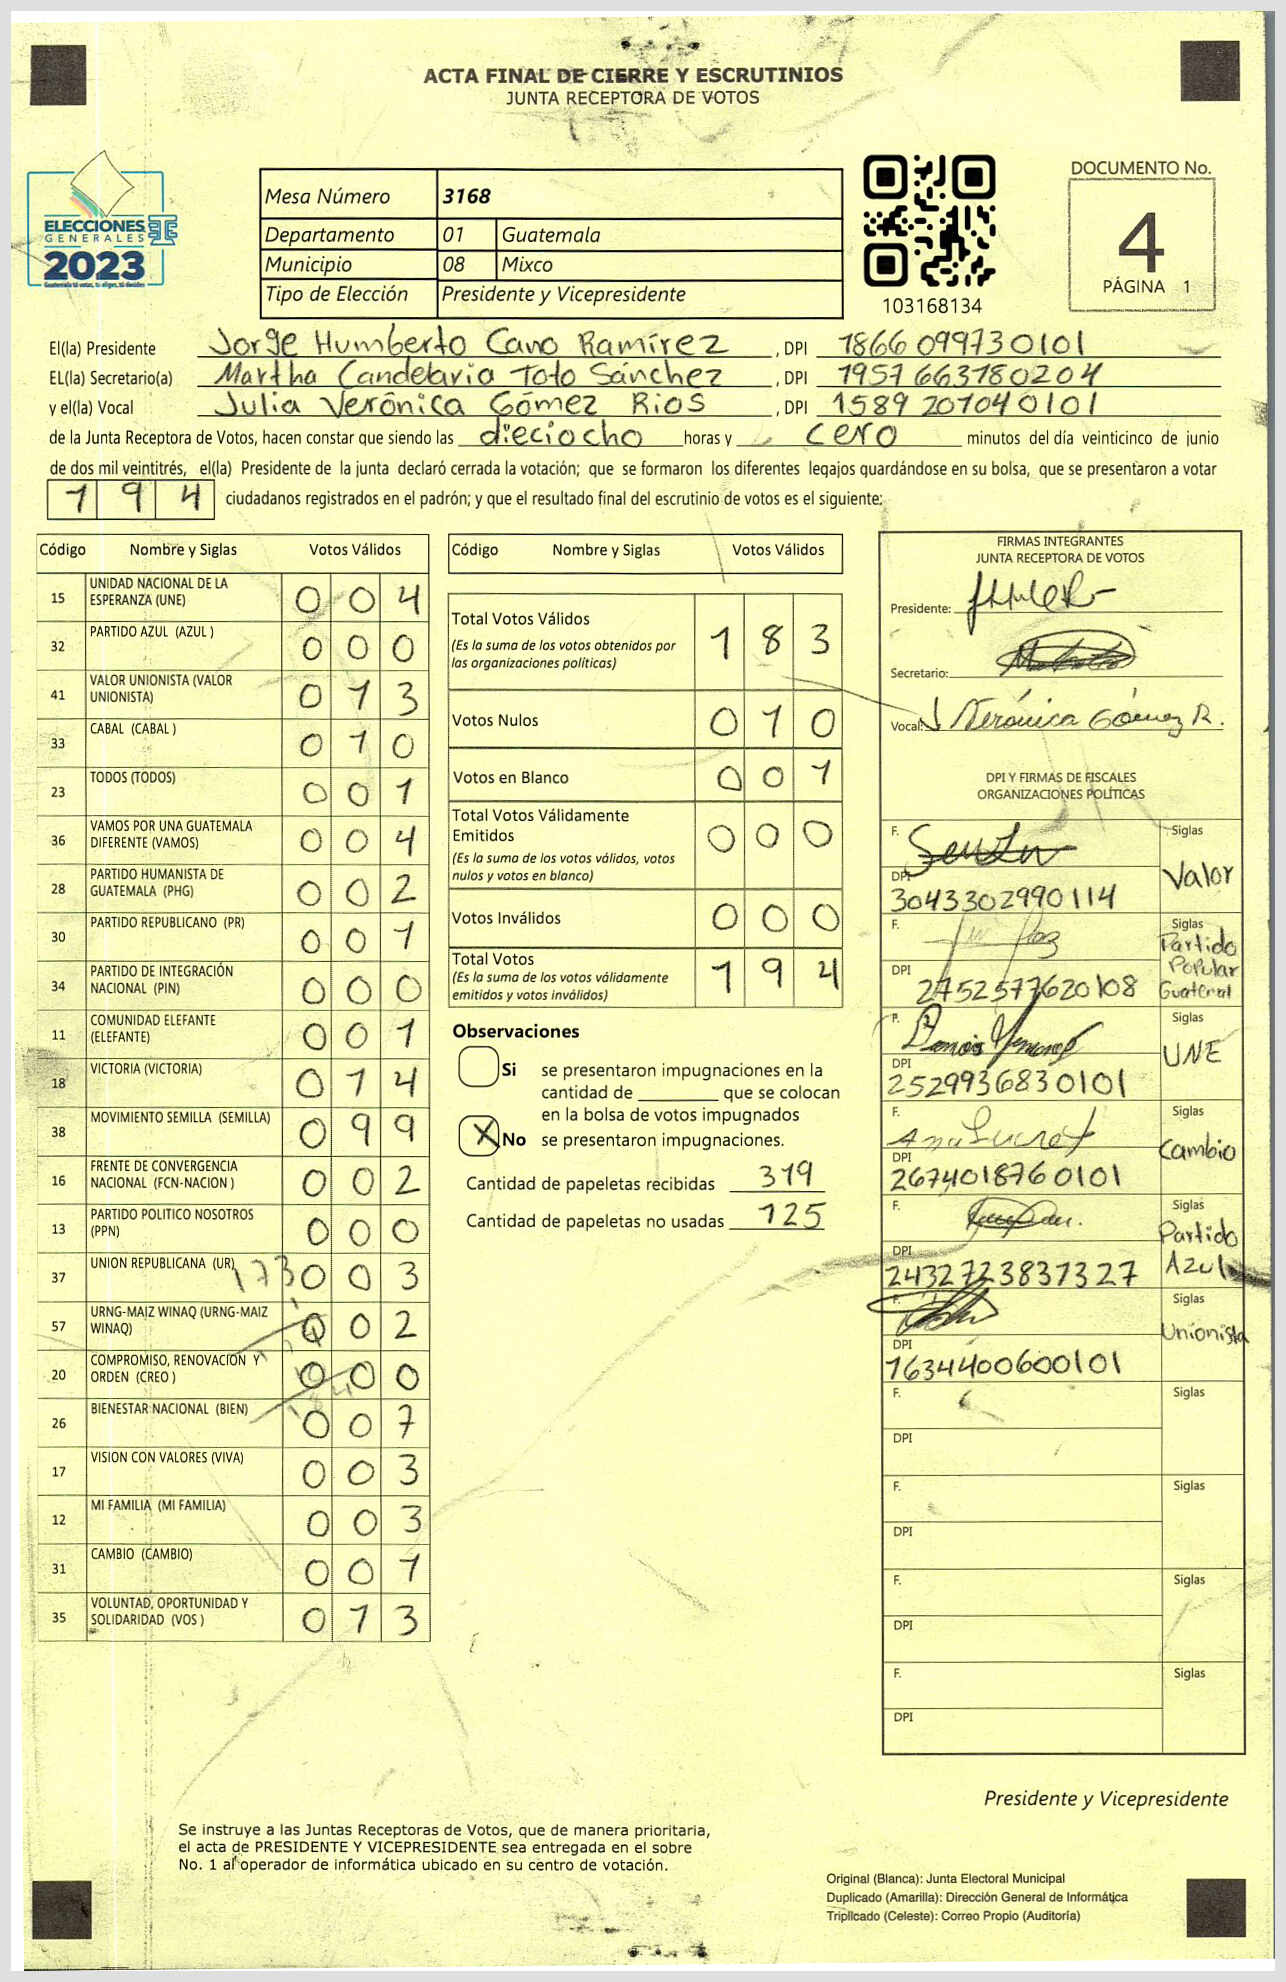 ACTA FINAL DE CIERRE Y ESCRUTINIOS
JUNTA RECEPTORA DE VOTOS
ELECCIONES
GENERALES
2023
Guatemala tú votas, tú eliges, tú decides
Mesa Número 3168
Departamento 01 Guatemala
Municipio 08 Mixco
Tipo de Elección Presidente y Vicepresidente
103168134
DOCUMENTO No.
4
PÁGINA 1
El(la) Presidente Jorge Humberto Cano Ramírez , DPI 1866 09973 0101
EL(la) Secretario(a) Martha Candelaria Toto Sánchez , DPI 1957 66378 0204
y el(la) Vocal Julia Verónica Gómez Rios , DPI 1589 20704 0101
de la Junta Receptora de Votos, hacen constar que siendo las dieciocho horas y cero minutos del día veinticinco de junio
de dos mil veintitrés, el(la) Presidente de la junta declaró cerrada la votación; que se formaron los diferentes legajos quardándose en su bolsa, que se presentaron a votar
1 9 4 ciudadanos registrados en el padrón; y que el resultado final del escrutinio de votos es el siguiente:
Código Nombre y Siglas Votos Válidos
15 UNIDAD NACIONAL DE LA ESPERANZA (UNE) 0 0 4
32 PARTIDO AZUL (AZUL ) 0 0 0
41 VALOR UNIONISTA (VALOR UNIONISTA) 0 1 3
33 CABAL (CABAL ) 0 1 0
23 TODOS (TODOS) 0 0 1
36 VAMOS POR UNA GUATEMALA DIFERENTE (VAMOS) 0 0 4
28 PARTIDO HUMANISTA DE GUATEMALA (PHG) 0 0 2
30 PARTIDO REPUBLICANO (PR) 0 0 1
34 PARTIDO DE INTEGRACIÓN NACIONAL (PIN) 0 0 0
11 COMUNIDAD ELEFANTE (ELEFANTE) 0 0 1
18 VICTORIA (VICTORIA) 0 1 4
38 MOVIMIENTO SEMILLA (SEMILLA) 0 9 9
16 FRENTE DE CONVERGENCIA NACIONAL (FCN-NACION ) 0 0 2
13 PARTIDO POLITICO NOSOTROS (PPN) 0 0 0
37 UNION REPUBLICANA (UR) 0 0 3
173
57 URNG-MAIZ WINAQ (URNG-MAIZ WINAQ) 0 0 2
20 COMPROMISO, RENOVACION Y ORDEN (CREO ) 0 0 0
26 BIENESTAR NACIONAL (BIEN) 0 0 7
17 VISION CON VALORES (VIVA) 0 0 3
12 MI FAMILIA (MI FAMILIA) 0 0 3
31 CAMBIO (CAMBIO) 0 0 1
35 VOLUNTAD, OPORTUNIDAD Y SOLIDARIDAD (VOS ) 0 1 3
Código Nombre y Siglas Votos Válidos
Total Votos Válidos 1 8 3
(Es la suma de los votos obtenidos por
las organizaciones políticas)
Votos Nulos 0 1 0
Votos en Blanco 0 0 1
Total Votos Válidamente
Emitidos 0 0 0
(Es la suma de los votos válidos, votos
nulos y votos en blanco)
Votos Inválidos 0 0 0
Total Votos 1 9 4
(Es la suma de los votos válidamente
emitidos y votos inválidos)
Observaciones
Si se presentaron impugnaciones en la
cantidad de ________ que se colocan
en la bolsa de votos impugnados
X No se presentaron impugnaciones.
Cantidad de papeletas recibidas 319
Cantidad de papeletas no usadas 125
FIRMAS INTEGRANTES
JUNTA RECEPTORA DE VOTOS
Presidente:
Secretario:
Vocal: J Verónica Gómez R.
DPI Y FIRMAS DE FISCALES
ORGANIZACIONES POLÍTICAS
F. Siglas Valor
DPI 3043302990114
F. Siglas Partido Popular Guatemal
DPI 2752577620108
F. Siglas UNE
DPI 2529936830101
F. Ana Lucret Siglas Cambio
DPI 2674018760101
F. Siglas Partido Azul
DPI 2432723837327
F. Siglas Unionista
DPI 1634400600101
F. Siglas
DPI
F. Siglas
DPI
F. Siglas
DPI
F. Siglas
DPI
Presidente y Vicepresidente
Se instruye a las Juntas Receptoras de Votos, que de manera prioritaria,
el acta de PRESIDENTE Y VICEPRESIDENTE sea entregada en el sobre
No. 1 al operador de informática ubicado en su centro de votación.
Original (Blanca): Junta Electoral Municipal
Duplicado (Amarilla): Dirección General de Informática
Triplicado (Celeste): Correo Propio (Auditoría)